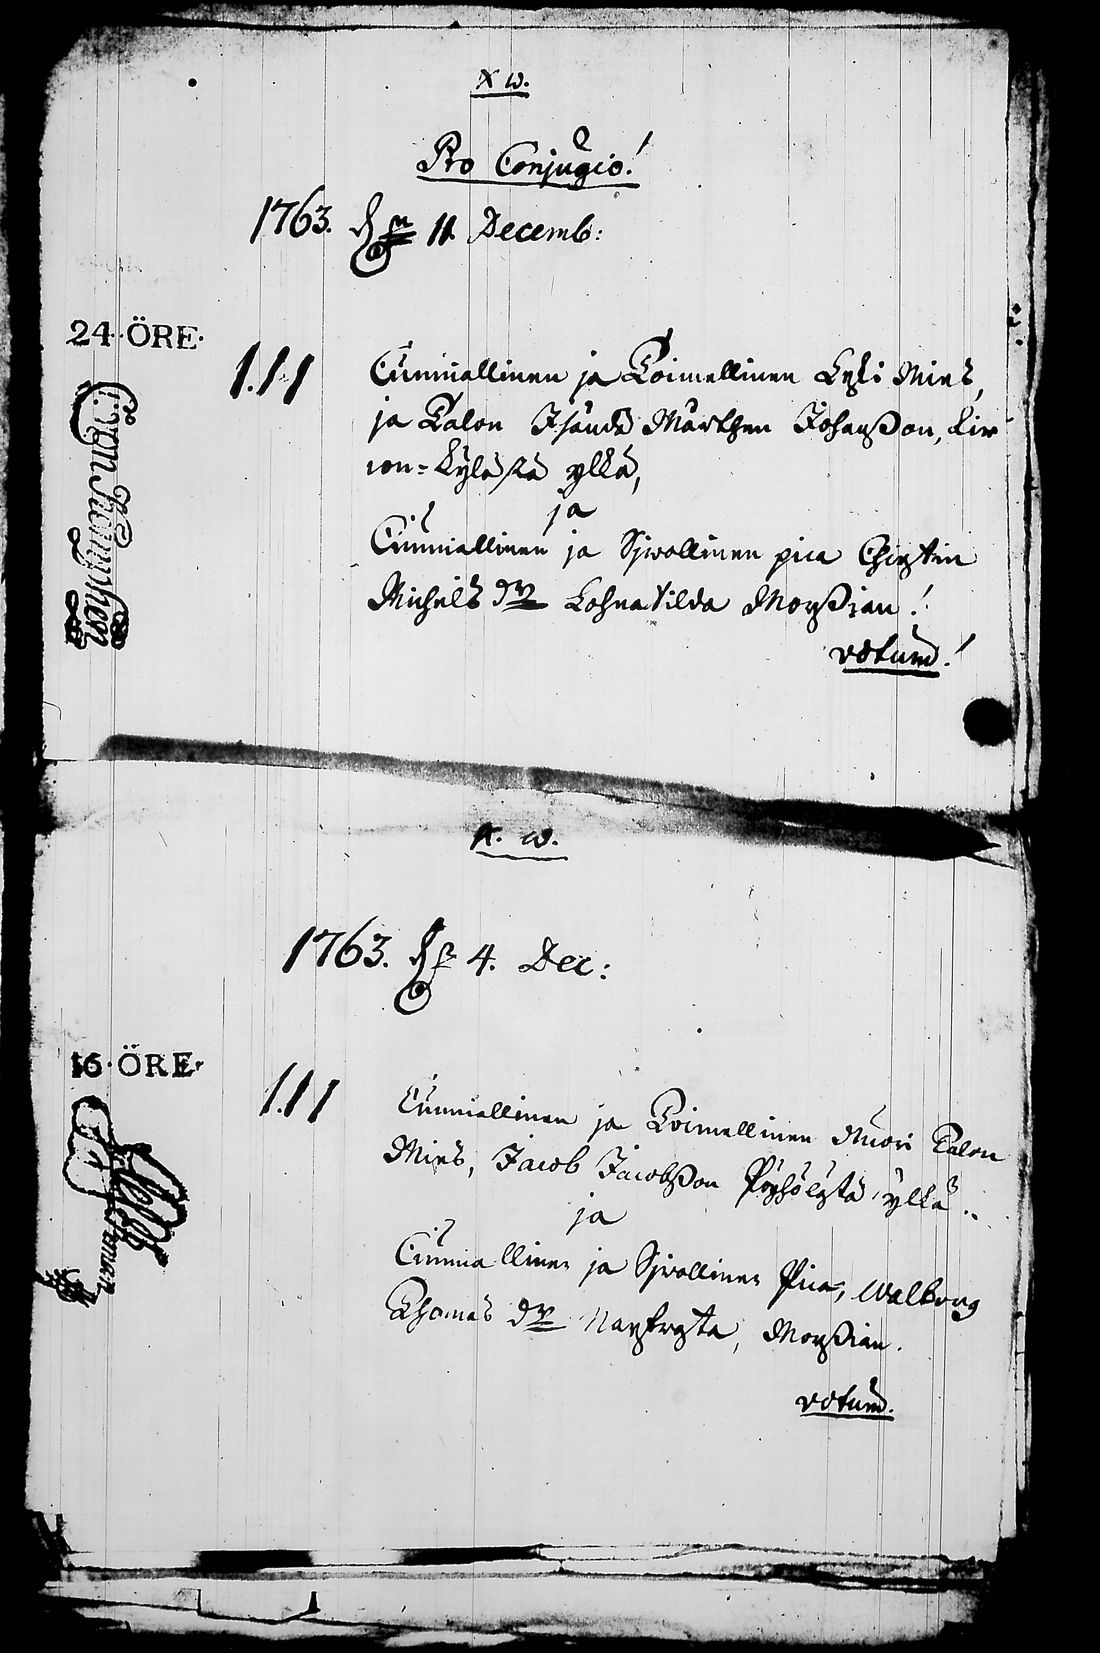 X w.
Pro Conjugio!
1763. d. 11 Decemb:
24·ÖRE·
1.11 Cunniallinen ja Toimellinen Leski Mies,
ja Talon Isändä Marthen Johansson, Kir
con=Kylästä ylkä,
ja
Cunniallinen ja Sjwollinen pica Chirstin
Michels dr Morssian!
votum!
A. w.
1763. d. 4. Dec:
16·ÖRE·
1.11 Cunniallinen ja Toimellinen Nuori Talon
Mies, Jacob Jacobsson ylkä..
ja
Cunniallinen ja Sjwollinen Pica, Walborg
Thomas dr Morssian.
votum.